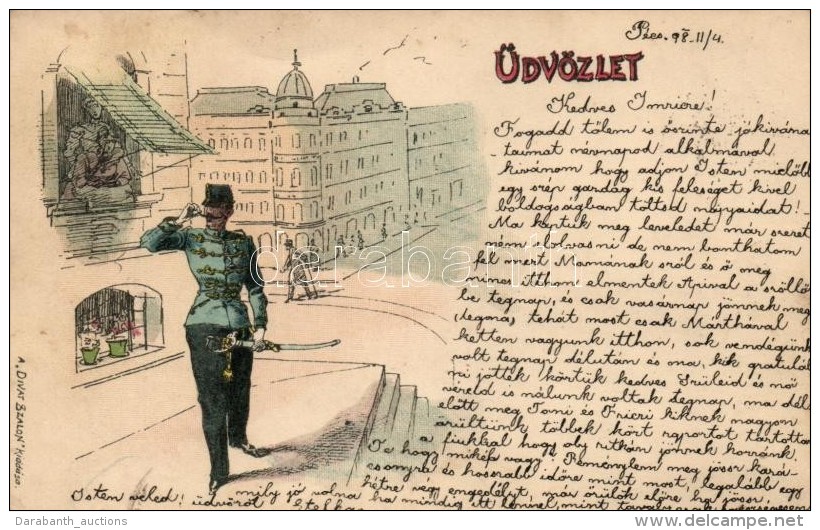 Pécs. 98-11/4.
ÜDVÖZLET
Kedves Imricre!
Fogadd tőlem is őszinte jókivána
taimat névnapod alkalmával
kivánom hogy adjon Isten mielőbb
egy szép gazdag kis feleséget kivel
boldogságban töltsd napjaidat! -
Ma kaptuk meg leveledet már szeret
ném elolvasni de nem bonthatom
fel mert Mamának szól és ő még
nincs itthon elmentek Apival a szőllő
be tegnap, és csak vasárnap jönnek meg
(legna) tehát most csak Márthával
ketten vagyunk itthon, sok vendégünk
volt tegnap délután és ma, kik gratulál
ni jöttek köztük kedves Szüleid és nő
véreid is nálunk voltak tegnap, ma dél
előtt meg Toni és Friczi kiknek nagyon
örültünk többek közt raportot tartottam
a fiukkal hogy oly ritkán jönnek hozzánk.
Te hogy mikép vagy? Reménylem meg jössz kará
csonyra és hosszabb időre mint most, legalább egy
hétre végy engedélyt, már örülök előre ha jössz.
mily jó volna ha mindig itt lennél, mint tavaly csak
Isten veled! üdvözöl Etelka
A „DIVAT SZALON" KIADÁSA.
darabanth
Darabanth_auctions
http://www.delcampe.net